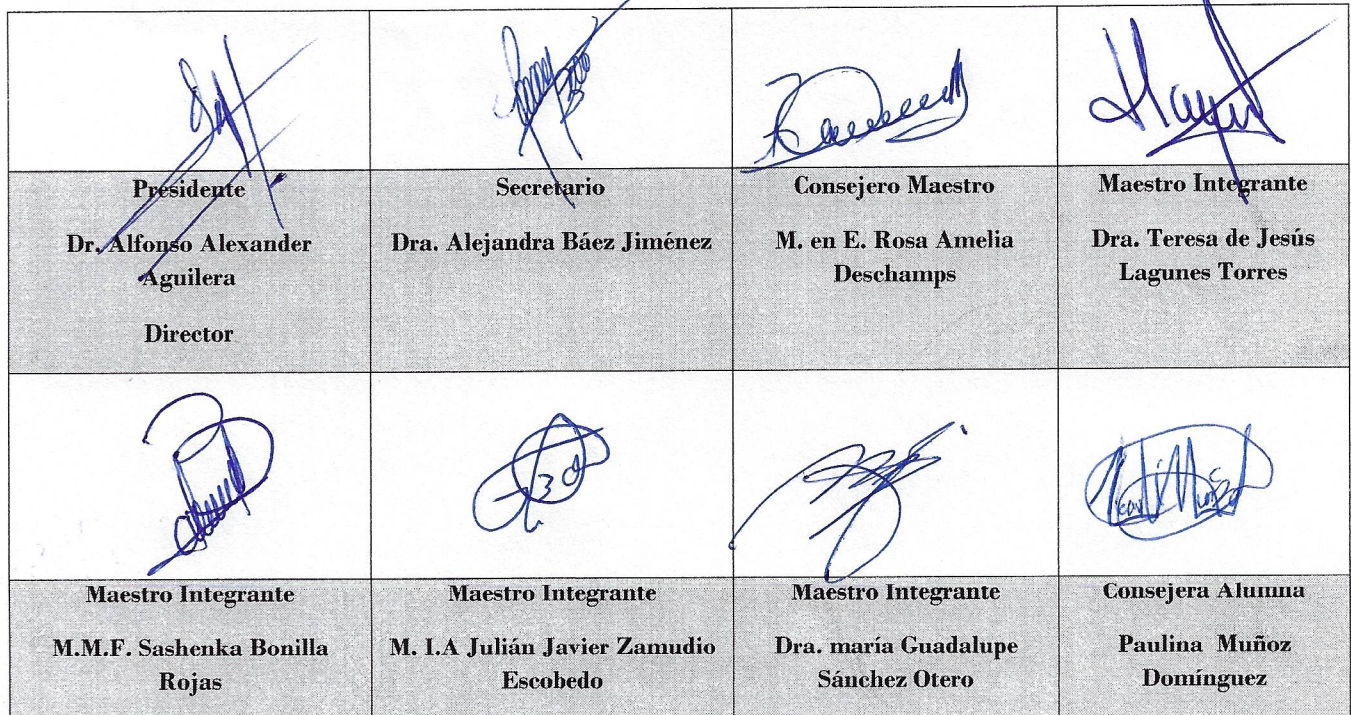 Presidente
Dr. Alfonso Alexander
Aguilera
Director
Secretario
Dra. Alejandra Báez Jiménez
Consejero Maestro
M. en E. Rosa Amelia
Deschamps
Maestro Integrante
Dra. Teresa de Jesús
Lagunes Torres
Maestro Integrante
M.M.F. Sashenka Bonilla
Rojas
Maestro Integrante
M. I.A Julián Javier Zamudio
Escobedo
Maestro Integrante
Dra. maría Guadalupe
Sánchez Otero
Consejera Alumna
Paulina Muñoz
Domínguez